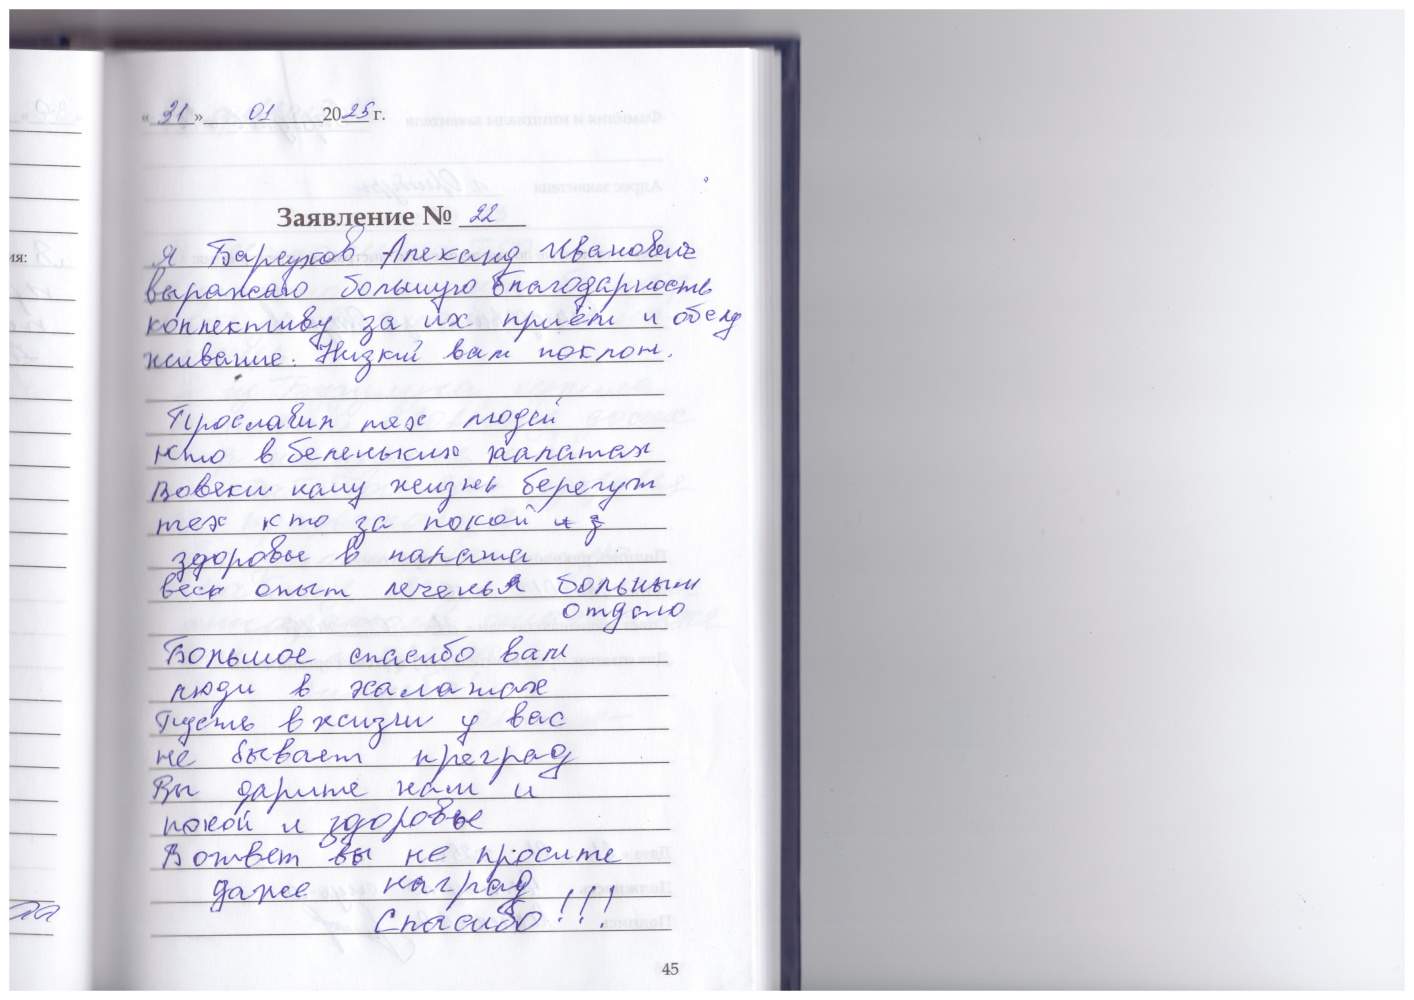 « 31 » 01 2025 г.
Заявление № 22
Я Александ Иванович
выражаю большую благодарность
коллективу за их приём и обслу
живание. Низкий вам поклон.
Прославим тех людей
кто в беленьких халатах
Вовеки нашу жизнь берегут
тех кто за покой и з
здоровье в палата
весь опыт леченья больным
отдало
Большое спасибо вам
люди в халатах
Пусть в жизни у вас
не бывает преград
Вы дарите нам и
покой и здоровье
В ответ вы не просите
даже наград
Спасибо!!!
45
ия: